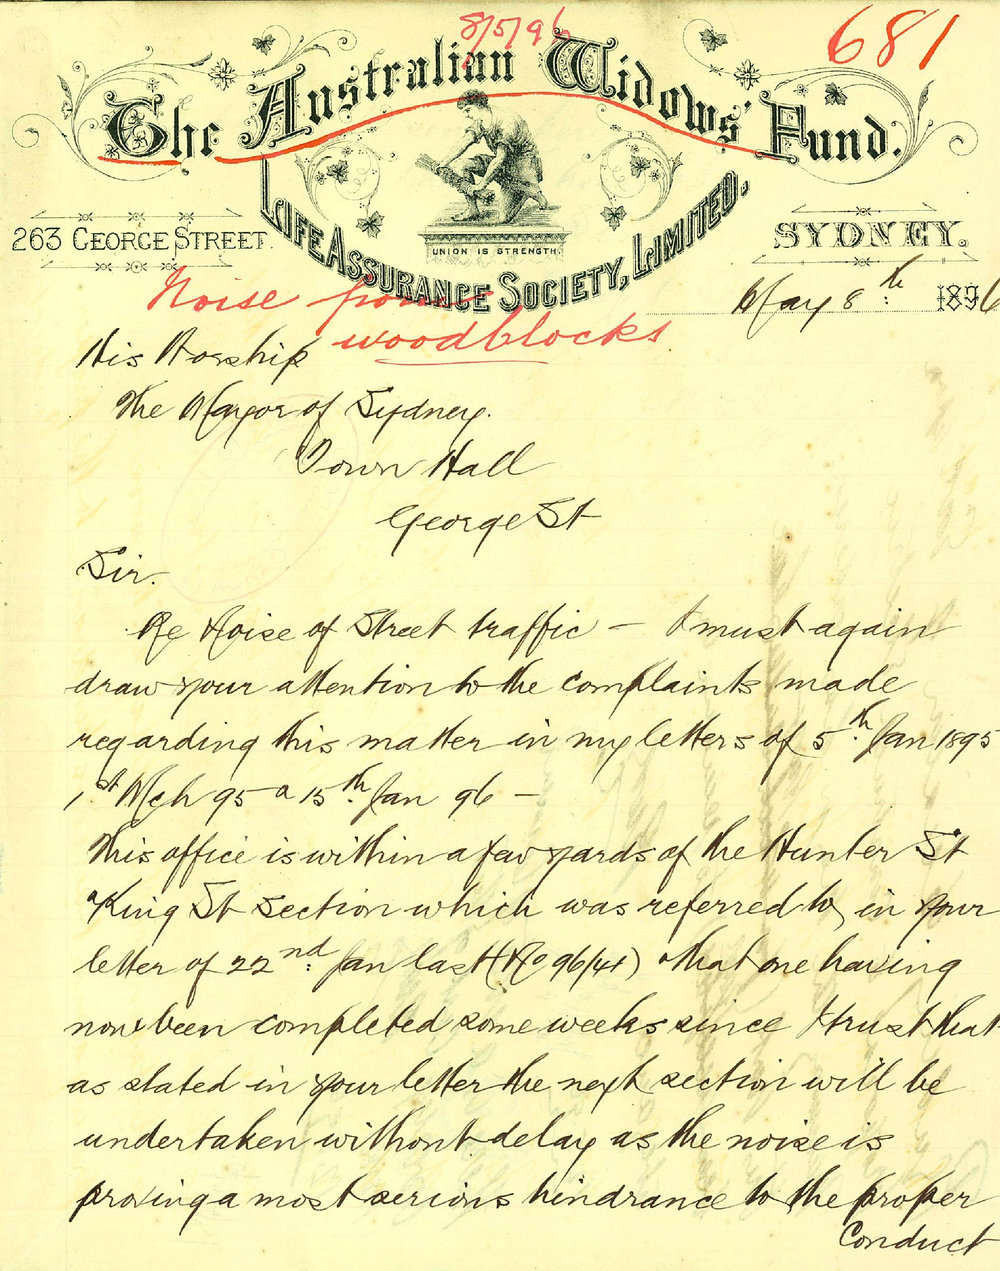 8/5/96
681
The Australian Widows' Fund.
LIFE ASSURANCE SOCIETY, LIMITED.
UNION IS STRENGTH.
263 GEORGE STREET.
SYDNEY.
Noise from
woodblocks
May 8th. 1896
His Worship
The Mayor of Sydney.
Town Hall
George St
Sir.
Re Noise of Street traffic – I must again
draw your attention to the complaints made
regarding this matter in my letters of 5th Jan 1895
1st Mch 95 & 15th Jan 96 –
This office is within a few yards of the Hunter St
& King St Section which was referred to, in your
letter of 22nd. Jan last (No 96/41) & that one having
now been completed some weeks since I trust that
as stated in your letter the next section will be
undertaken without delay as the noise is
proving a most serious hindrance to the proper
Conduct